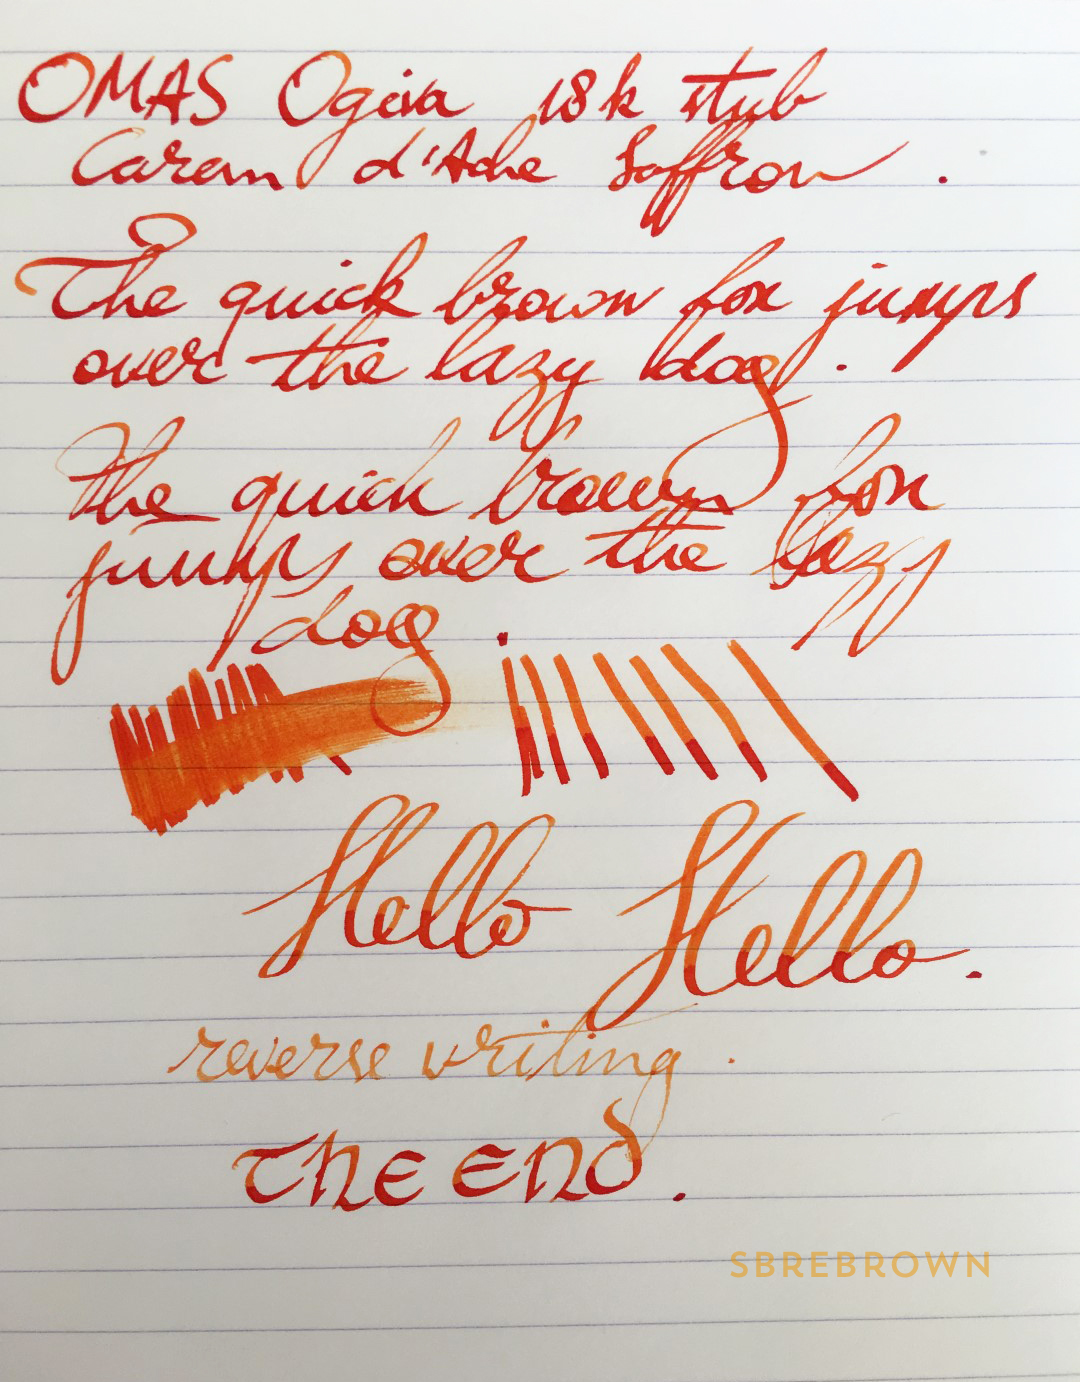 OMAS Ogiva 18k stub
Caran d'Ache Saffron .
The quick brown fox jumps
over the lazy dog .
The quick brown fox
jumps over the lazy
dog .
Hello Hello.
reverse writing .
THE END .
SBREBROWN